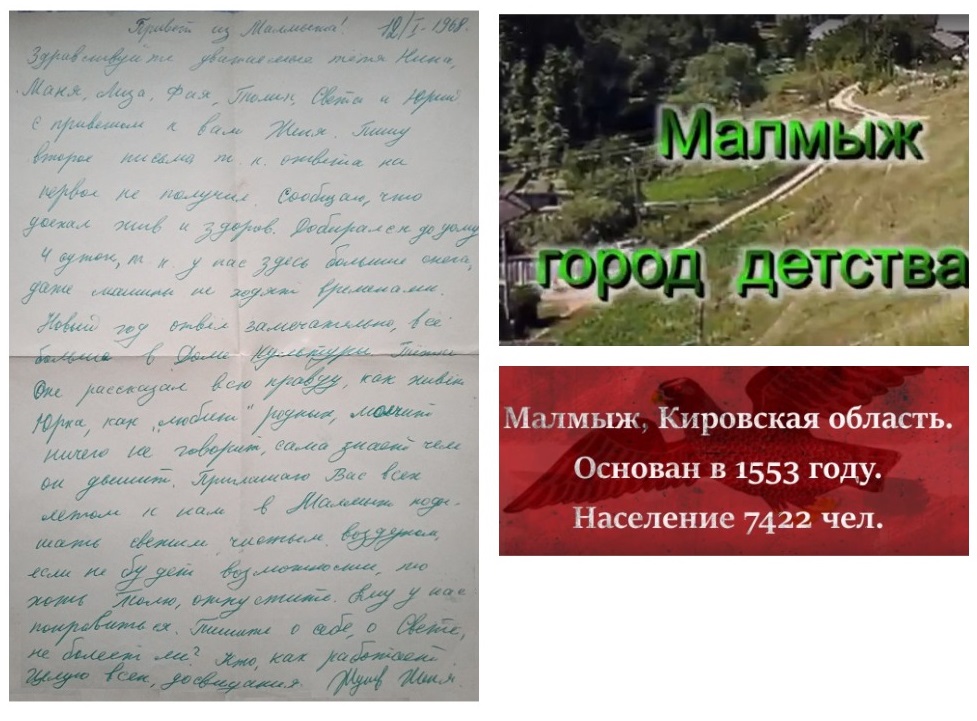 Привет из Малмыжа! 12/I-1968.
Здравствуйте уважаемые тётя Нина,
Маня, Лиза, Фая, Толик, Света и Юрий
с приветом к вам Женя. Пишу
второе письмо т. к. ответа на
первое не получил. Сообщаю, что
доехал жив и здоров. Добирался до дому
4 суток, т. к. у нас здесь большие снега,
даже машины не ходят временами.
Новый год отвёл замечательно, всё
больше в Доме культуры
рассказал всю правду, как живёт
Юрка, как "любит" родных, молчит
ничего не говорит, сама знает чем
он дышит. Приглашаю Вас всех
летом к нам в Малмыж поды-
шать свежим, чистым воздухом,
если не будет возможности, то
хоть Толю, отпустите. Ему у нас
понравиться. Пишите о себе, о Свете,
не болеет ли? Кто, как работает.
Целую всех, досвидания. Женя.
Малмыж
город детства
Малмыж, Кировская область.
Основан в 1553 году.
Население 7422 чел.